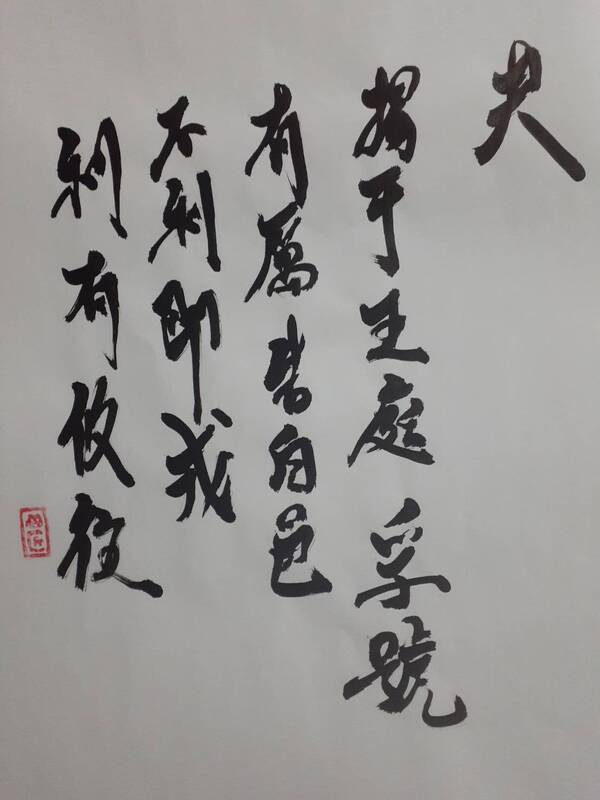 夬
揚于王庭 孚號
有厲告自邑
不利即戎
利有攸往